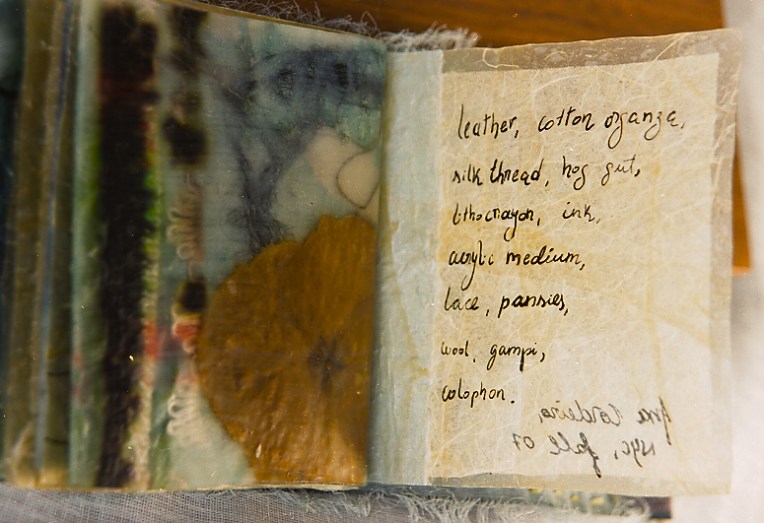 leather, cotton organza,
silk thread, hog gut,
lithocrayon, ink,
acrylic medium,
lace, pansies,
wool, gampi,
colophon.
Ana Cordeiro,
NYC, fall 07